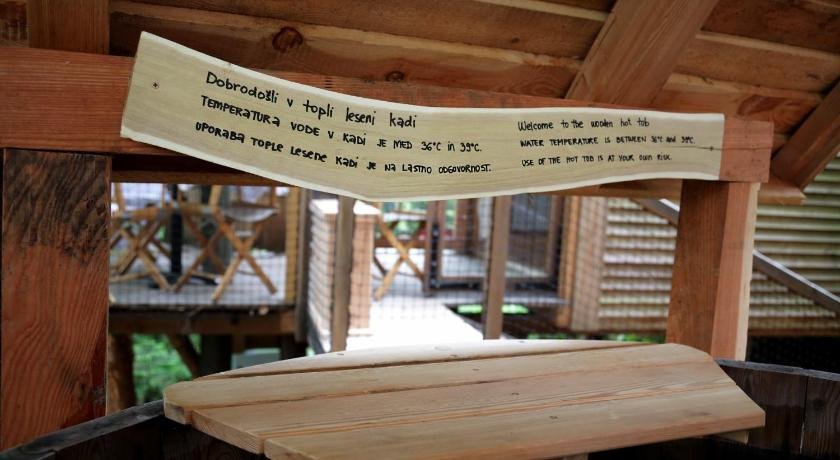 Dobrodošli v topli leseni kadi
TEMPERATURA VODE V KADI JE MED 36°C in 39°C.
UPORABA TOPLE LESENE KADI JE NA LASTNO ODGOVORNOST.
Welcome to the wooden hot tob
WATER TEMPERATURE IS BETWEEN 36°C and 39°C.
USE OF THE HOT TOB IS AT YOUR OWN RISK.